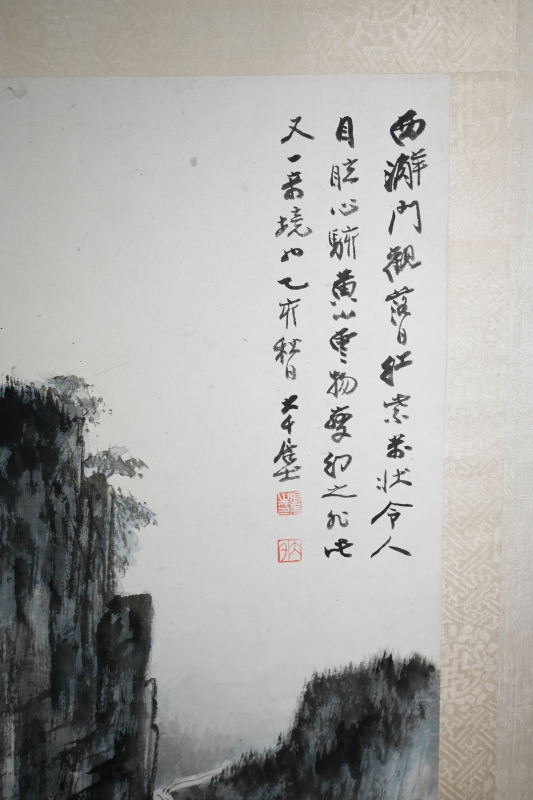 西澥門觀落日紅紫萬狀令人
目眩心駭黃山雲物變幻之外此
又一景境也乙亥秋日大千居士